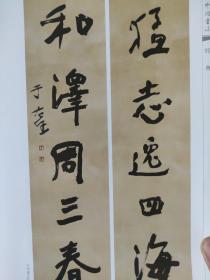 猛志逸四海
和澤周三春
于右任